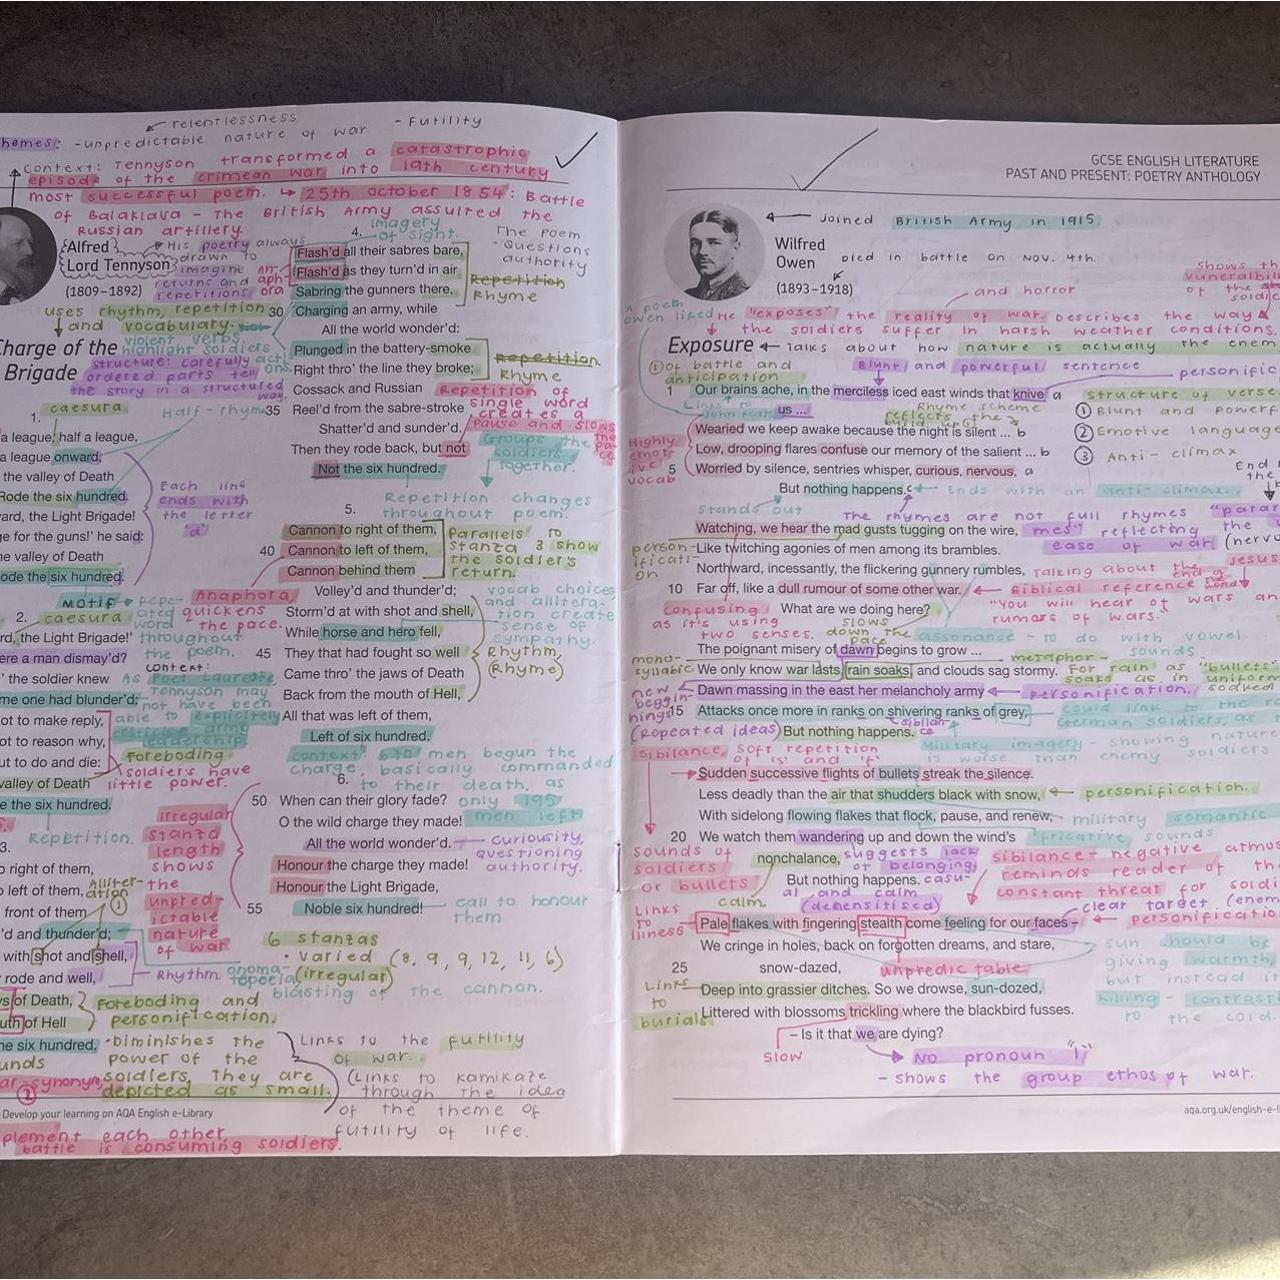 hemes: - unpredictable nature of war
relentlessness
- Futility
Context: Tennyson transformed a catastrophic
episode of the crimean war into 19th century
most successful poem. ↳ 25th october 1854: Battle
of Balaklava - The British Army assulted the
Russian artillery.
Alfred
Lord Tennyson
(1809–1892)
His poetry always
drawn to
imagine
returns and
repetitions
uses rhythm, repetition
and vocabulary.
violent verbs
highlight soldiers
structure: carefully
ordered parts tell
the story in a structured
way.
Charge of the
Brigade
1.
caesura
Half-rhyme
a league, half a league,
a league onward,
the valley of Death
Rode the six hundred.
ard, the Light Brigade!
ge for the guns!' he said:
he valley of Death
ode the six hundred.
each line
ends with
the letter
'd'
motif
repe-
ated
word
throughout
the poem.
Anaphora,
quickens
the pace.
2.
caesura
rd, the Light Brigade!'
ere a man dismay'd?
' the soldier knew
me one had blunder'd:
ot to make reply,
ot to reason why,
ut to do and die:
valley of Death
e the six hundred.
context:
As Poet Laureate
Tennyson may
not have been
able to explicitly
criticise army
leadership.
foreboding
soldiers have
little power.
Repetition.
irregular
stanza
length
shows
the
unpred-
ictable
nature
of war
3.
o right of them,
o left of them,
front of them
'd and thunder'd;
with shot and shell,
rode and well,
s of Death,
uth of Hell
he six hundred.
Alliter-
ation
①
Rhythm.
onoma-
topoeia
blasting of the cannon.
Foreboding and
personification.
• Diminishes the
power of the
soldiers, they are
depicted as small.
Develop your learning on AQA English e-Library
plement each other
battle is consuming soldiers.
4.
imagery
of sight.
an-
aph-
ora
Flash'd all their sabres bare,
Flash'd as they turn'd in air
Sabring the gunners there,
30 Charging an army, while
All the world wonder'd:
Plunged in the battery-smoke
Right thro' the line they broke;
Cossack and Russian
35 Reel'd from the sabre-stroke
Shatter'd and sunder'd.
Then they rode back, but not
Not the six hundred.
The poem
- Questions
authority
Repetition
Rhyme
Repetition.
Rhyme
Repetition of
single word
creates a
pause and slows
the
pa-
ce
Groups the
soldiers
together.
Repetition changes
throughout poem.
5.
Cannon to right of them,
40 Cannon to left of them,
Cannon behind them
Volley'd and thunder'd;
Storm'd at with shot and shell,
While horse and hero fell,
45 They that had fought so well
Came thro' the jaws of Death
Back from the mouth of Hell,
All that was left of them,
Left of six hundred.
Parallels to
stanza 3 show
the soldier's
return.
vocab choices
and allitera-
tion create
sense of
sympathy.
Rhythm,
(Rhyme)
context: 670 men begun the
charge, basically commanded
to their death, as
only 195
men left
6.
50 When can their glory fade?
O the wild charge they made!
All the world wonder'd.
Honour the charge they made!
Honour the Light Brigade,
55 Noble six hundred!
curiousity,
questioning
authority.
call to honour
them
6 stanzas
• varied (8, 9, 9, 12, 11, 6)
(irregular)
Links to the futility
of war.
(Links to kamikaze
through the idea
of the theme of
futility of life.
GCSE ENGLISH LITERATURE
PAST AND PRESENT: POETRY ANTHOLOGY
Wilfred
Owen
(1893–1918)
Joined British Army in 1915
Died in battle on Nov. 4th.
shows th
vunerabili
of the
soldie
and horror
He "exposes" the reality of war. Describes the way
the soldiers suffer in harsh weather conditions
a poem
owen liked
Exposure
Talks about how nature is actually the enem
① of battle and
anticipation
Blunt and powerful sentence
personific
structure of verse
① Blunt and powerf
② Emotive language
③ Anti-climax
Links to
John Keats
Rhyme scheme
reflects the
build up
1 Our brains ache, in the merciless iced east winds that knive a
us ...
Wearied we keep awake because the night is silent ... b
Low, drooping flares confuse our memory of the salient ... b
5 Worried by silence, sentries whisper, curious, nervous, a
But nothing happens. c
Highly
emot-
ive
vocab
ends with an anti-climax.
stands out
The rhymes are not full rhymes "parar
mes" reflecting the
ease of war (nerv
Watching, we hear the mad gusts tugging on the wire,
Like twitching agonies of men among its brambles.
Northward, incessantly, the flickering gunnery rumbles,
10 Far off, like a dull rumour of some other war.
What are we doing here?
person-
ificati-
on
Talking about the
end of
Jesus
Biblical reference
"You will hear of wars an
rumors of wars."
confusing
as it's using
two senses.
slows
down the
pace
assonance - to do with vowel
sounds
mono-
syllabic
The poignant misery of dawn begins to grow ...
We only know war lasts, rain soaks, and clouds sag stormy.
Dawn massing in the east her melancholy army
15 Attacks once more in ranks on shivering ranks of grey,
But nothing happens.
metaphor-
For rain as "bullets"
soaks as in uniform
soaked
new
beggin-
nings
personification.
could link to the
German soldiers, as
(repeated ideas)
sibilan-
ce
Military imagery - showing nature
is worse than enemy soldiers
sibilance, soft repetition
of 's' and 'f'
Sudden successive flights of bullets streak the silence.
Less deadly than the air that shudders black with snow,
With sidelong flowing flakes that flock, pause, and renew,
20 We watch them wandering up and down the wind's
nonchalance,
But nothing happens.
personification.
military
semantic
fricative sounds
sounds of
soldiers
or bullets
calm
suggests lack
of belonging,
casu-
al and calm
(desensitised)
sibilance - negative atmos
reminds reader of th
constant threat for soldi
clear target (enem
personificatio
Links
to
illness
Pale flakes with fingering stealth come feeling for our faces –
We cringe in holes, back on forgotten dreams, and stare,
25 snow-dazed,
Deep into grassier ditches. So we drowse, sun-dozed,
Littered with blossoms trickling where the blackbird fusses.
– Is it that we are dying?
unpredic table
Links
to
burials
sun should be
giving warmth,
but instead it
killing - contrast
to the cold.
slow
No pronoun "I"
- shows the group ethos of war.
aqa.org.uk/english-e-li